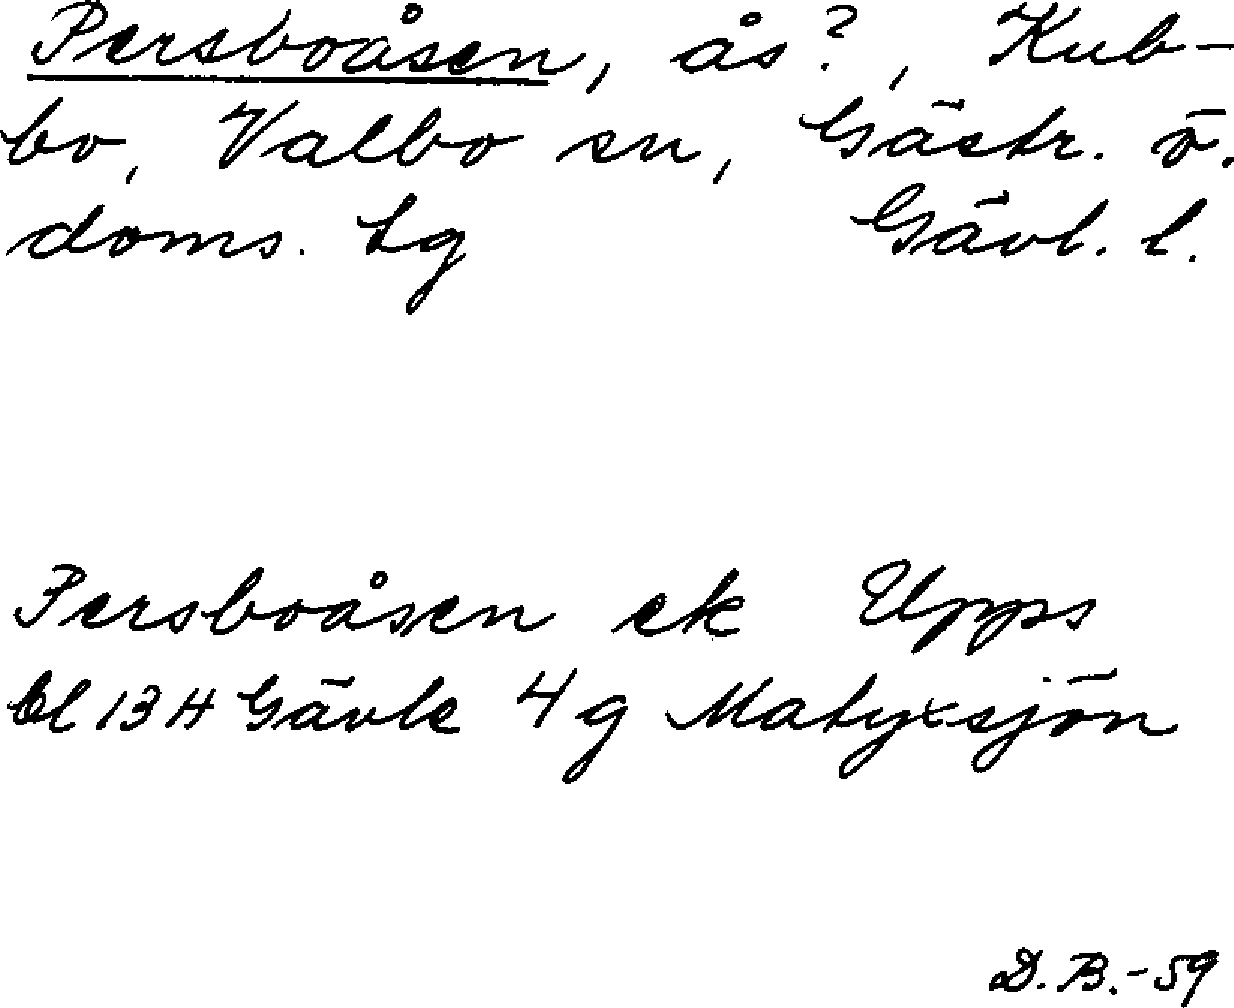 Persboåsen, ås?, Kub-
bo, Valbo sn, Gästr. ö.
doms. tg Gävl. l.
Persboåsen ek Upps
bl 13 H Gävle 4 g Matyxsjön
D. B. - 59